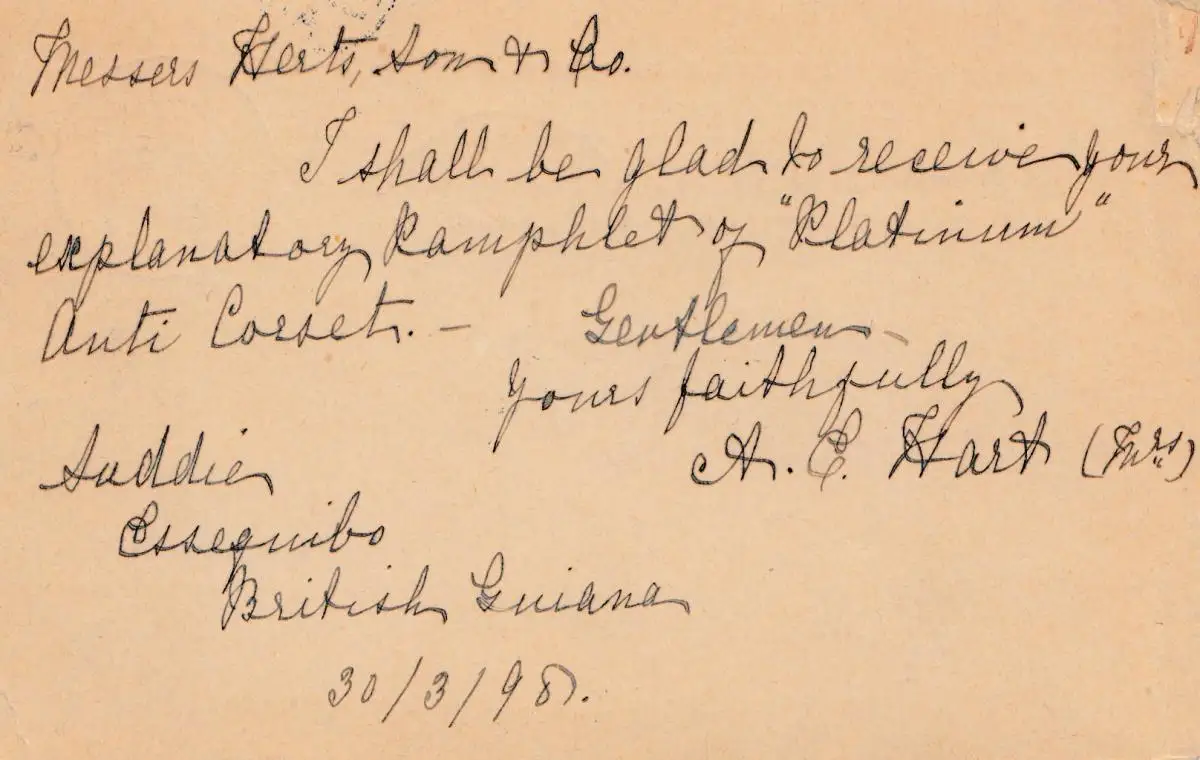 Messers Herts, Son & Co.
I shall be glad to receive your
explanatory Pamphlet of "Platinum"
Anti Corset. —
Gentlemen
Yours faithfully
A. E. Hart (Mrs)
Suddie
Essequibo
British Guiana
30/3/98.